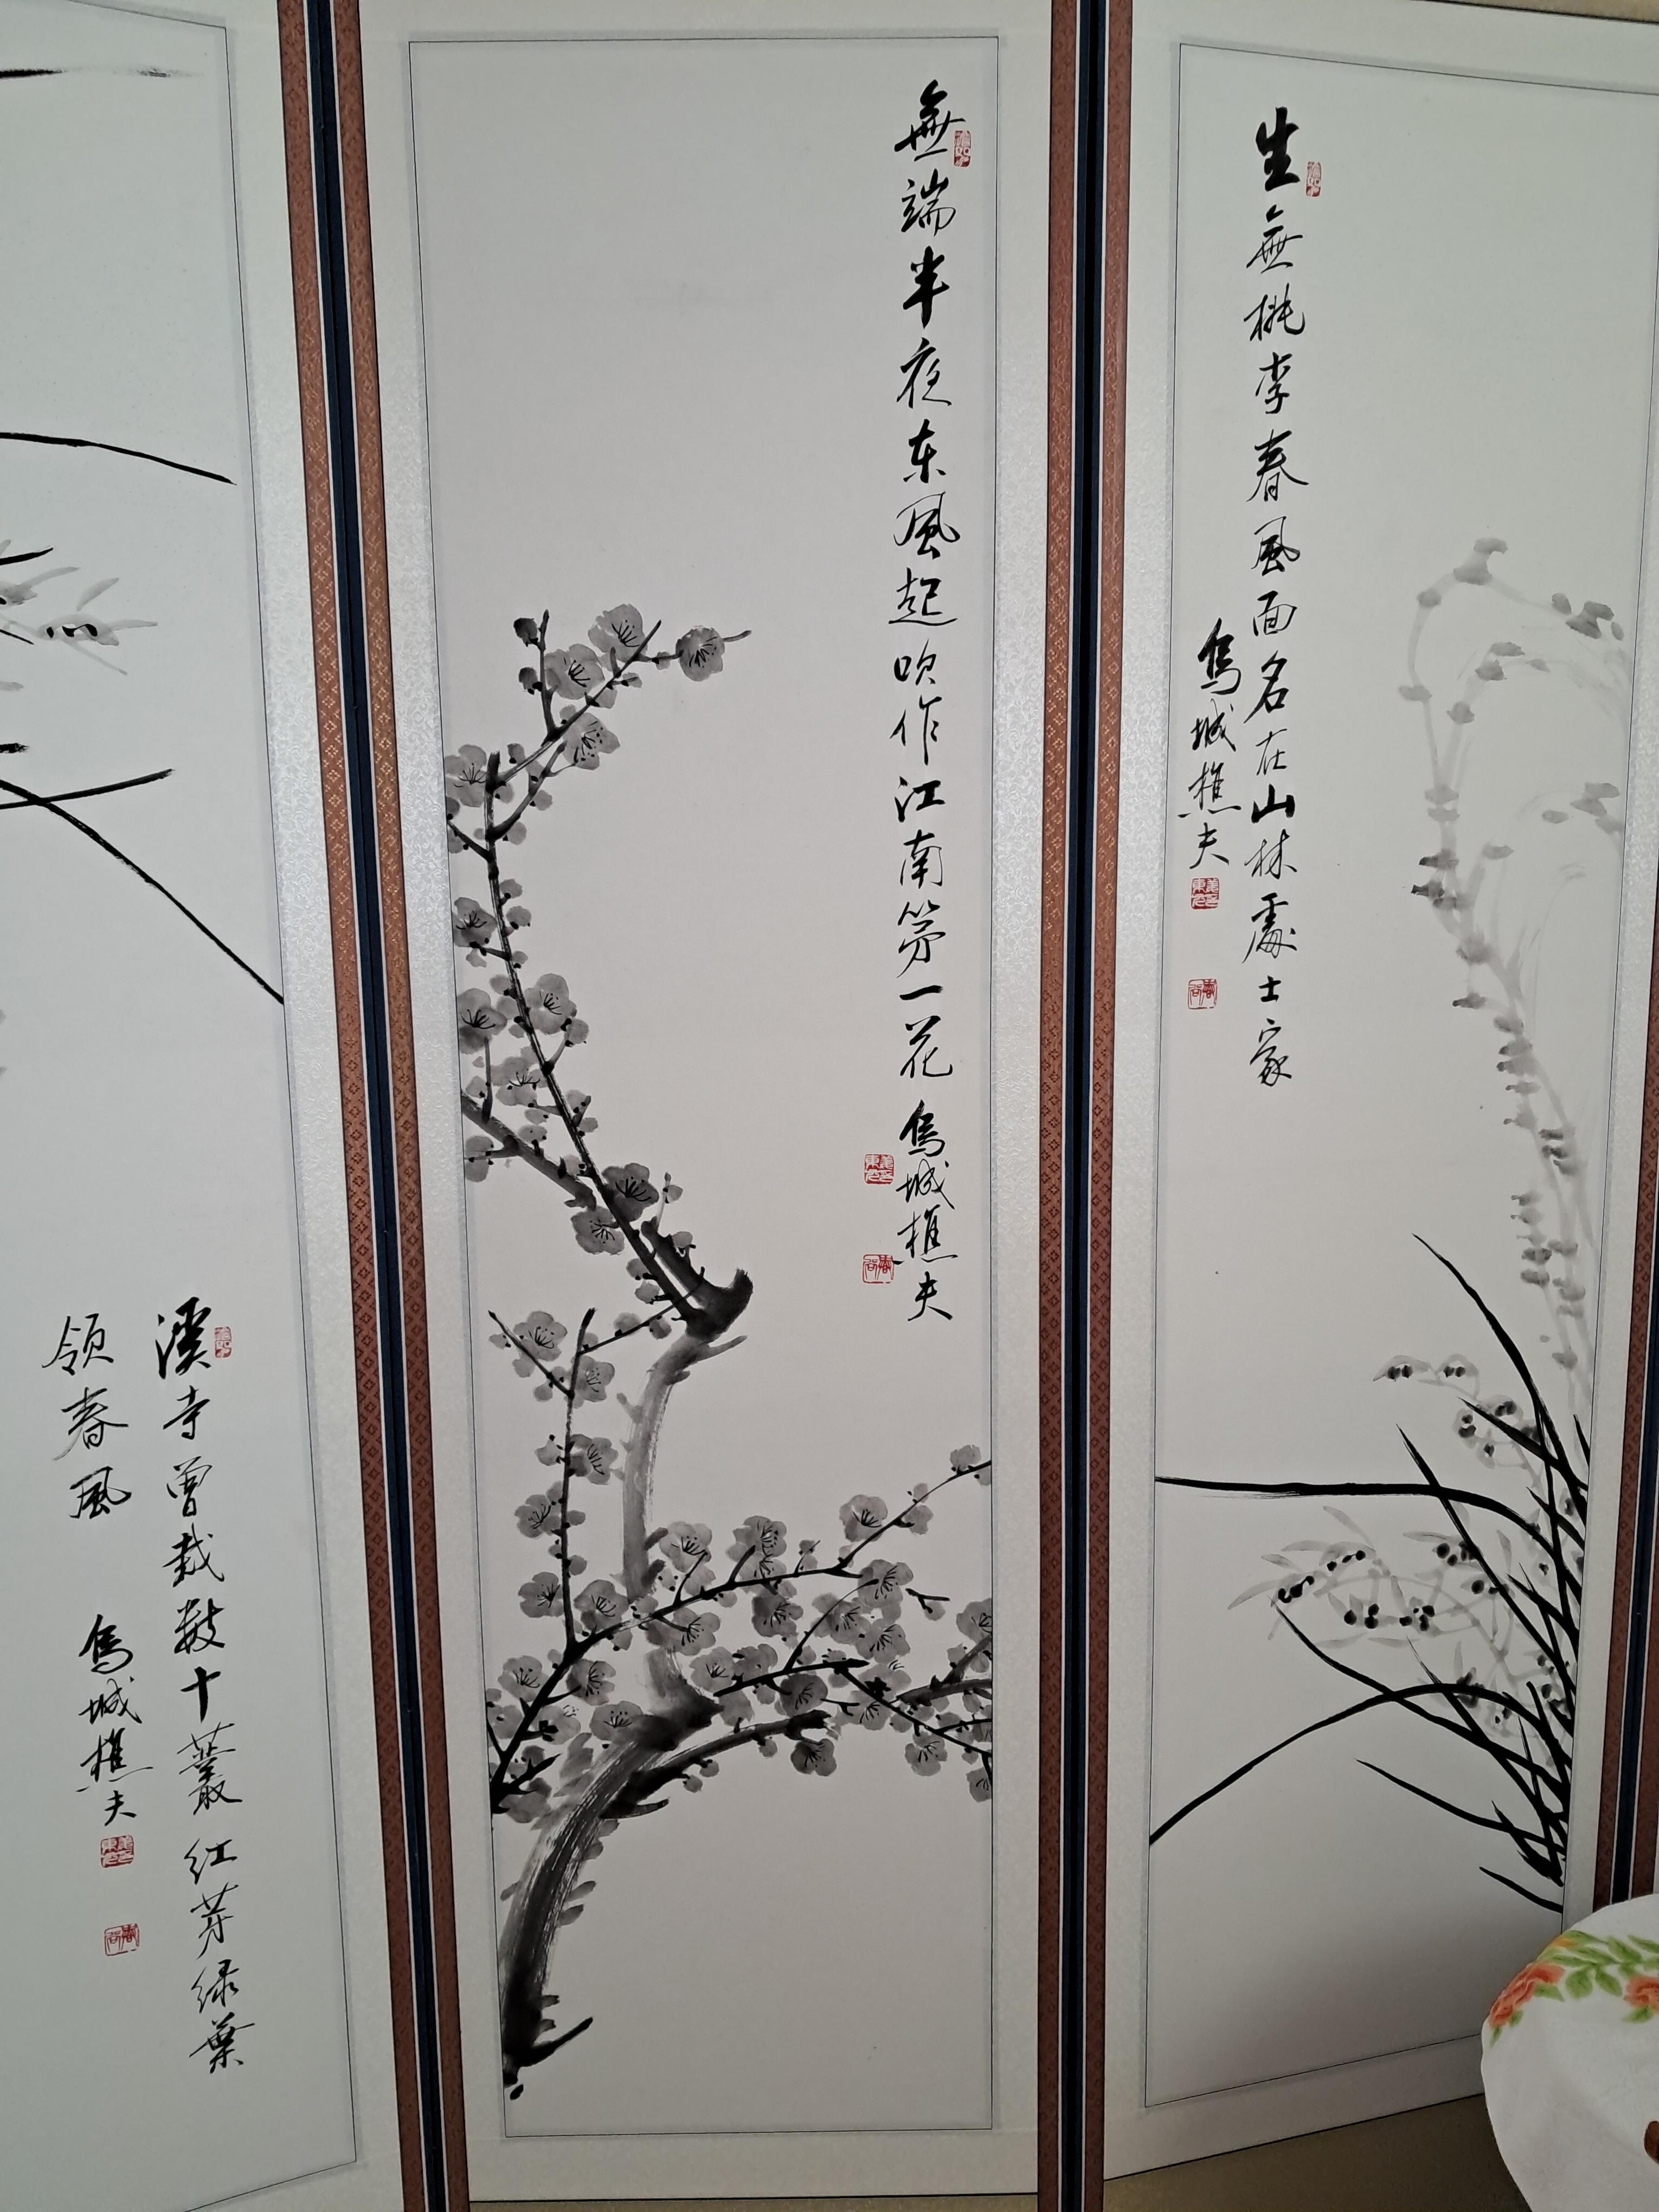 生無桃李春風面名在山林處士家
烏城樵夫
無端半夜东風起吹作江南第一花 烏城樵夫
溪寺曾栽数十叢紅芽緑葉
領春風
烏城樵夫